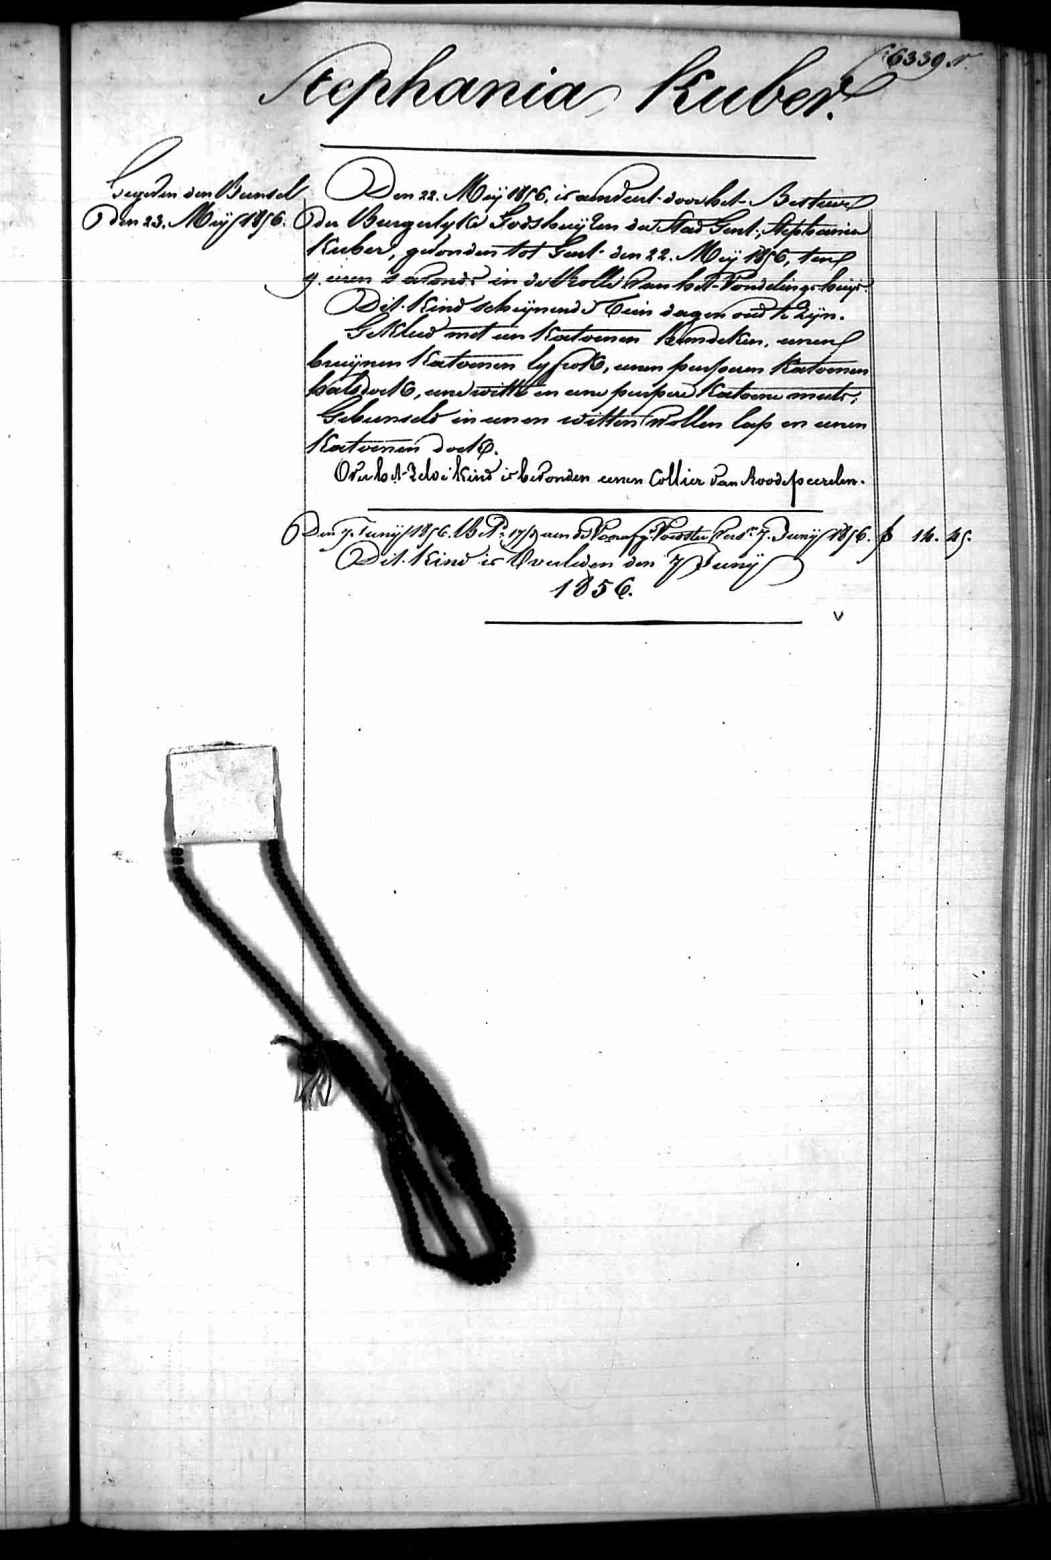 6339
Stephania Kuber.
Gegeven den Bunsel
Den 23. Meÿ 1856.
Den 22. Meÿ 1856, is aenveert door het Bestier
der Burgerlyke Godshuyzen der Stad Gent, Stephania
Kuber, gevonden tot Gent den 22. Meÿ 1856, ten
9. uren s'avonds in de Rolle van het Vondelingshuys.
Dit kind scheynende Tien dagen oud te zyn.
Gekleed met een katoenen hemdeken, eenen
bruynen katoenen lyfrok, eenen purperen katoenen
halsdoek, eene witte en eene purpere katoene muts,
Gebunseld in eenen witten wollen lap en eenen
katoenen doek.
Over het zelve kind is bevonden eenen Collier van Roode peerelen.
Den 7. Junÿ 1856. 7. Junÿ 1856. 14. 45.
Dit kind is Overleden den 7 Junÿ
1856.